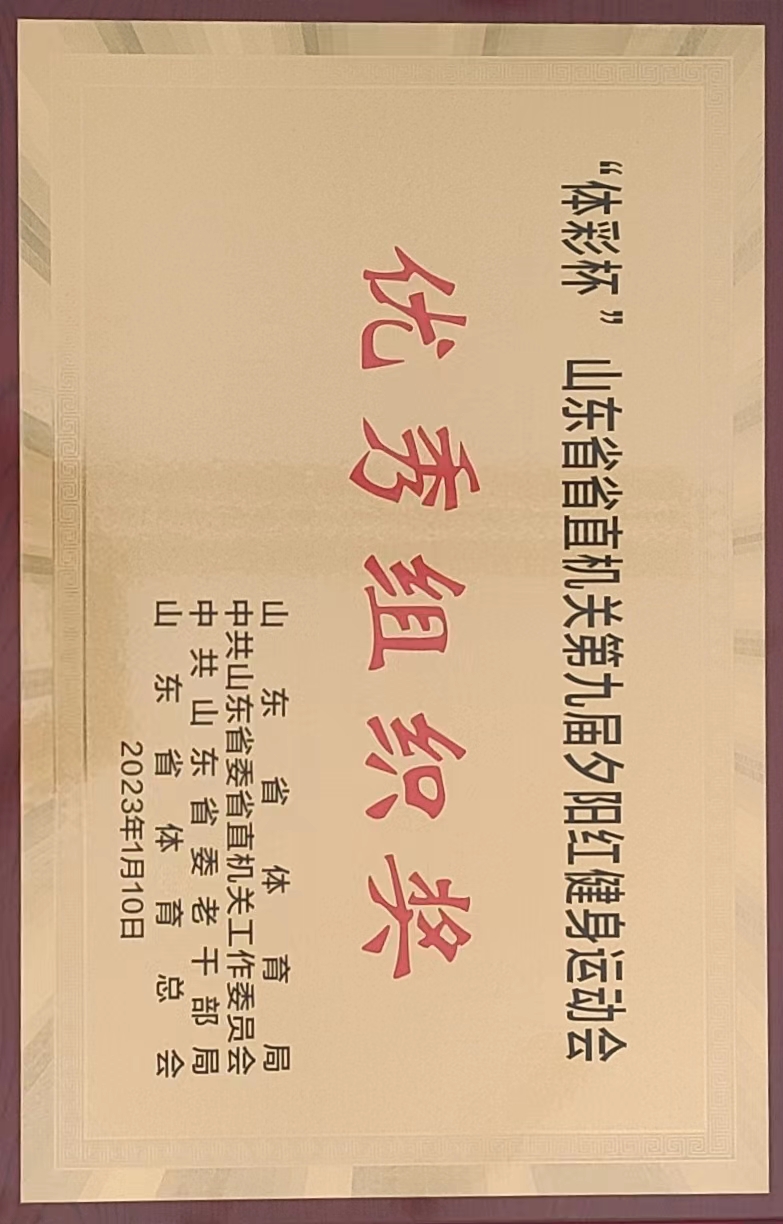 “体彩杯”山东省省直机关第九届夕阳红健身运动会
优秀组织奖
山东省体育局
中共山东省委省直机关工作委员会
中共山东省委老干部局
山东省体育总会
2023年1月10日